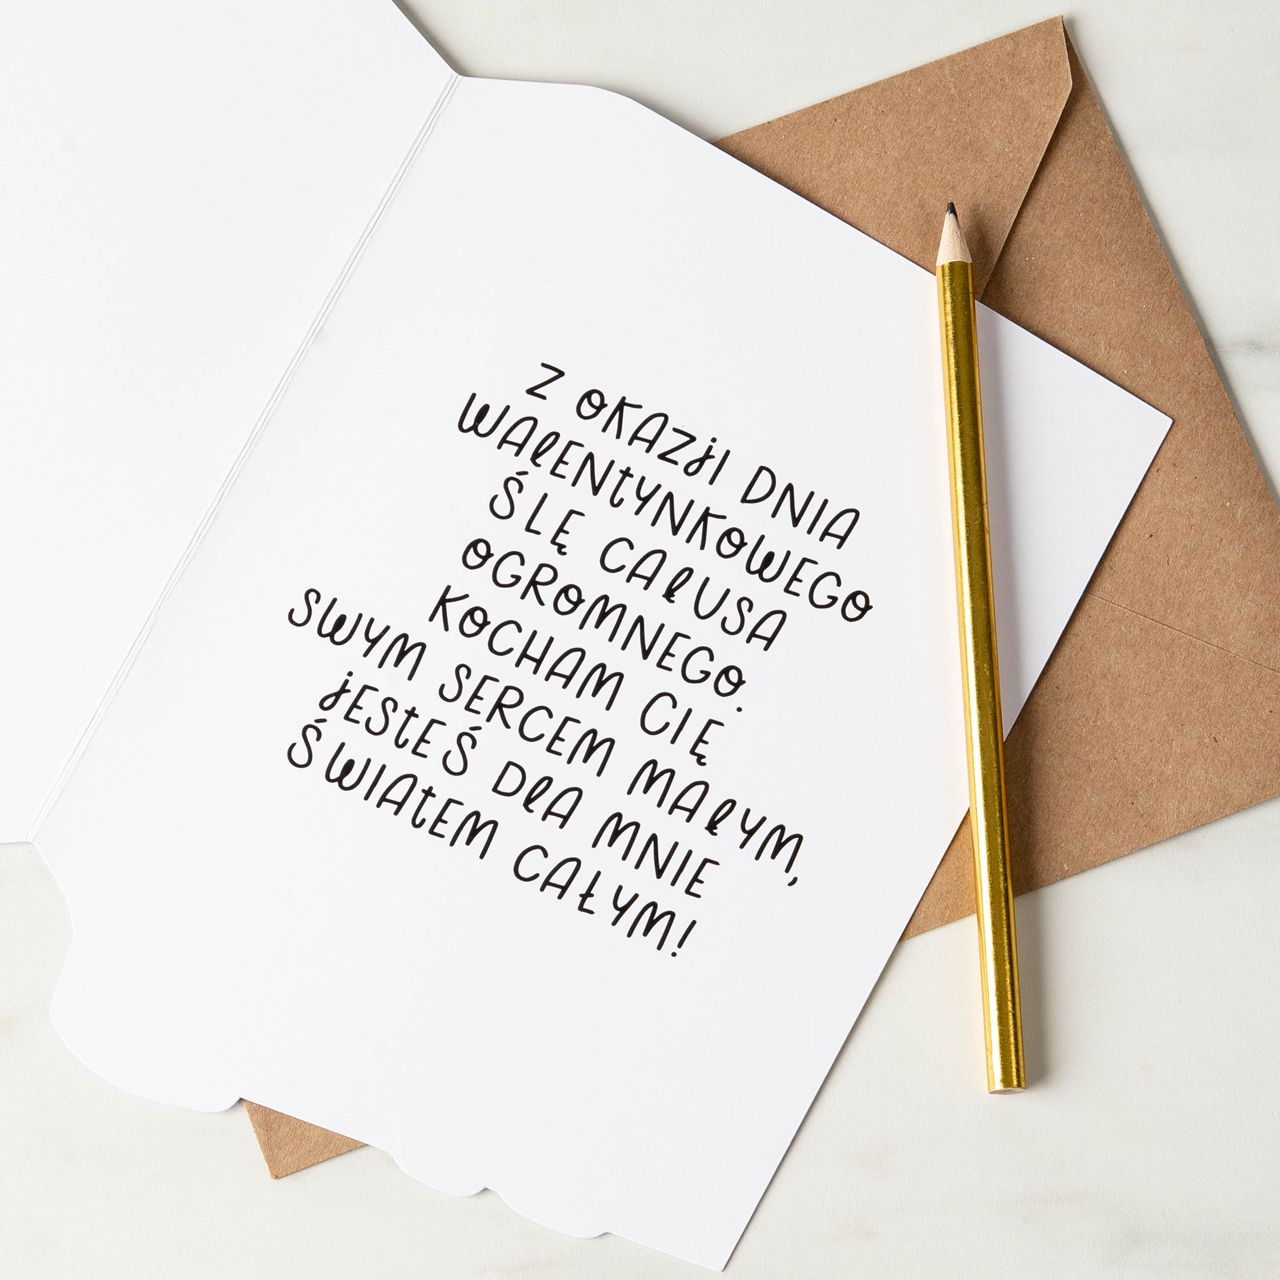 Z OKAZJI DNIA
WALENTYNKOWEGO
ŚLĘ CAŁUSA
OGROMNEGO.
KOCHAM CIĘ
SWYM SERCEM MAŁYM,
JESTEŚ DLA MNIE
ŚWIATEM CAŁYM!